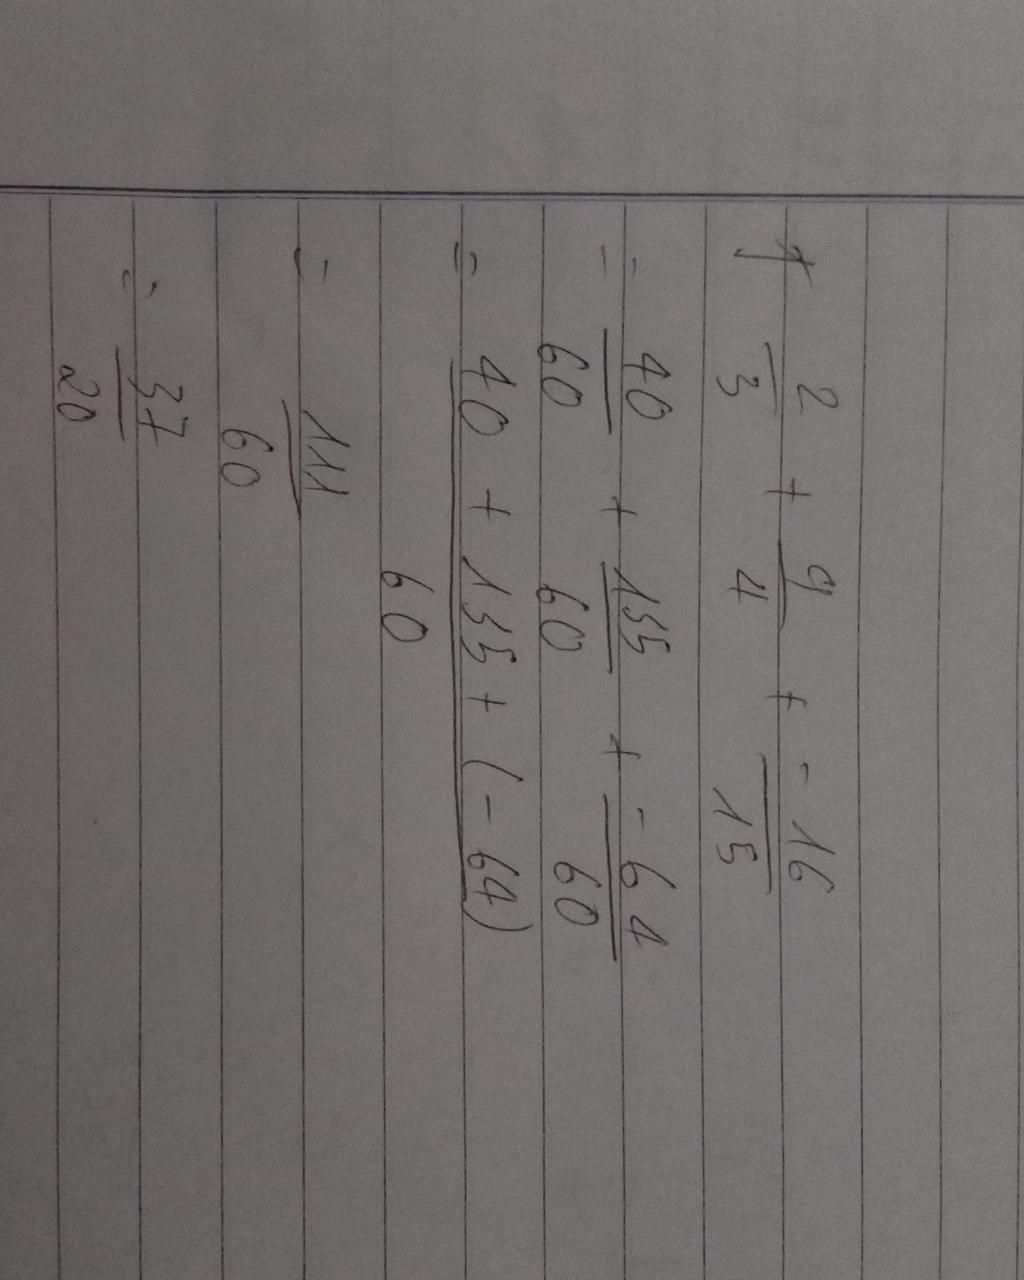 f 2/3 + 9/4 + -16/15
= 40/60 + 135/60 + -64/60
= 40 + 135 + (-64) / 60
= 111/60
= 37/20